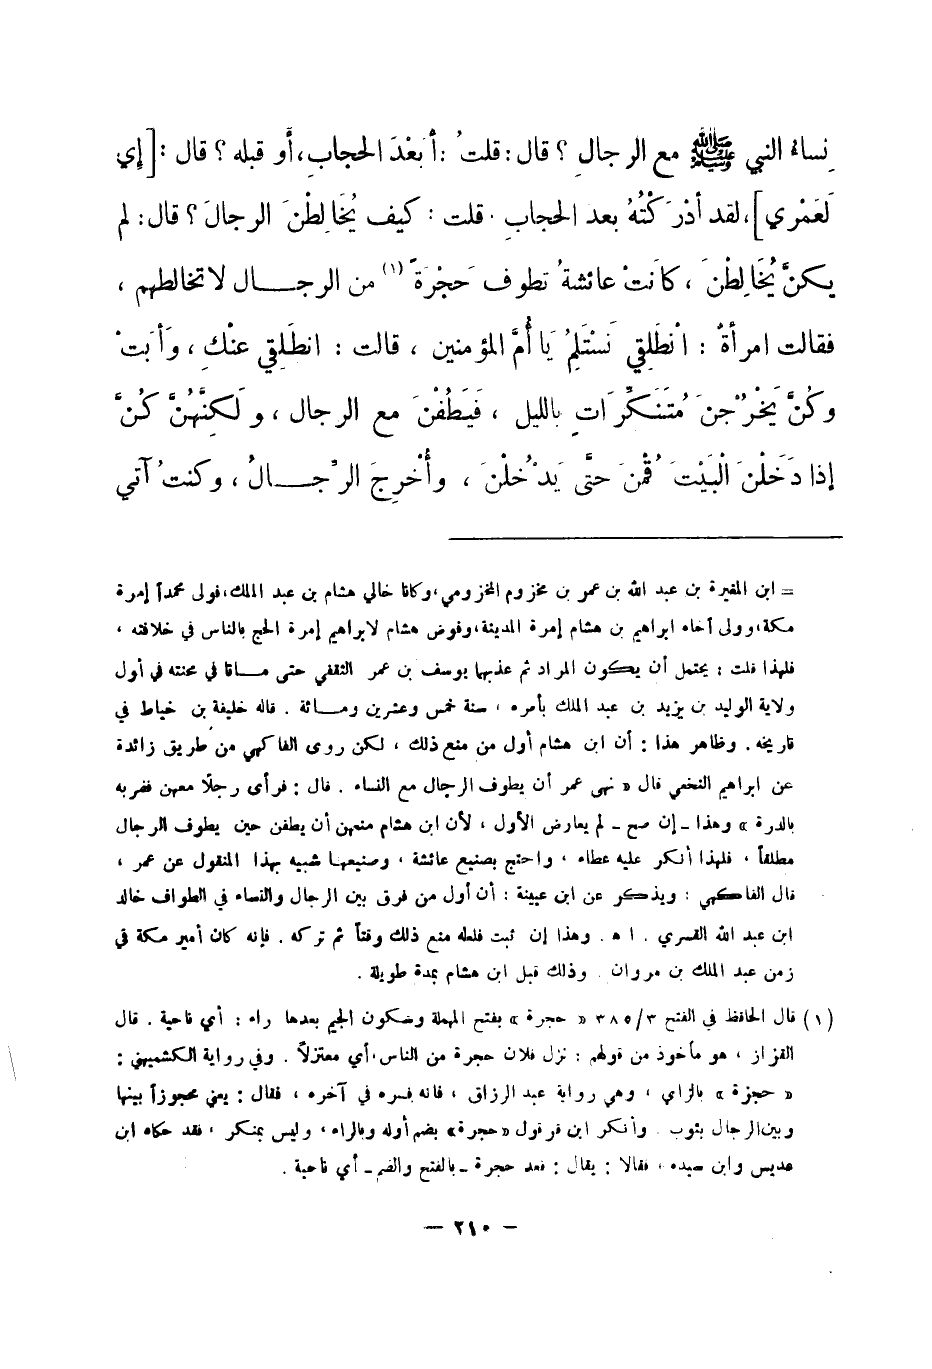 نساءُ النبي ﷺ مع الرجالِ ؟ قال : قلتُ : أَبَعْدَ الحجابِ ، أَو قبله ؟ قال : [إي
لَعَمْري] ، لقد أَدْرَكْتُهُ بعد الحجابِ . قلت : كيف يُخَالِطْنَ الرجالَ ؟ قال : لم
يكنَّ يُخَالِطْنَ ، كاَنتْ عائشةُ تطوف حَجْرَةً (١) من الرجـــال لا تخالطهم ،
فقالت امرأةٌ : انْطَلِقِي نَسْتَلِمُ يَا أُمَّ المؤمنين ، قالت : انطَلِقي عنْكِ ، وَأَبَتْ
وكُنَّ يَخْرُجنَ مُتَنَكِّرَاتٍ بالليل ، فَيَطُفْنَ مع الرجال ، ولَكنَّهُنَّ كُنَّ
إذا دَخَلْنَ الْبَيْتَ قُمْنَ حتَّى يَدْخُلنَ ، وأُخْرِجَ الرِّجـــالُ ، وكنتُ آتي
= ابن المغيرة بن عبد الله بن عمر بن مخزوم المخزومي ، وكانا خالي هشام بن عبد الملك ، فولى محمداً إمرة
مكة ، وولى أخاه ابراهيم بن هشام إمرة المدينة ، وفوض هشام لابراهيم إمرة الحج بالناس في خلافته ،
فلهذا قلت : يحتمل أن يكون المراد ثم عذبها يوسف بن عمر الثقفي حتى مـاتا في محنته في أول
ولاية الوليد بن يزيد بن عبد الملك بأمره ، سنة خمس وعشرين ومـائة . قاله خليفة بن خياط في
تاريخه . وظاهر هذا : أن ابن هشام أول من منع ذلك ، لكن روى الفاكهي من طريق زائدة
عن ابراهيم النخعي قال « نهى عمر أن يطوف الرجال مع النساء . قال : فرأى رجلًا معهن فضربه
بالدرة » وهذا ـ إن صح ـ لم يعارض الأول ، لأن ابن هشام منعهن أن يطفن حين يطوف الرجال
مطلقاً ، فلهذا أنكر عليه عطاء ، واحتج بصنيع عائشة ، وصنيعها شبيه بهذا المنقول عن عمر ،
قال الفاكهي : ويذكر عن ابن عيينة : أن أول من فرق بين الرجال والنساء في الطواف خالد
ابن عبد الله القسري . اهـ . وهذا إن ثبت فلعله منع ذلك وقتاً ثم تركه . فإنه كان أمير مكة في
زمن عبد الملك بن مروان . وذلك قبل ابن هشام بمدة طويلة .
(١) قال الحافظ في الفتح ٣/٣٨٥ « حجرة » بفتح المهملة وسكون الجيم بعدها راء : أي ناحية . قال
القزاز ، هو مأخوذ من قولهم : نزل فلان حجرة من الناس ، أي معتزلًا . وفي رواية الكشميهني :
« حجزة » بالزاي ، وهي رواية عبد الرزاق ، فانه فسره في آخره ، فقال : يعني محجوزاً بينها
وبين الرجال بثوب . وأنكر ابن قرقول « حجرة » بضم أوله وبالراء ، وليس بمنكر ، فقد حكاه ابن
عديس وابن سيده ، فقالا : يقال : قعد حجرة ـ بالفتح والضم ـ أي ناحية .
— ٢١٠ —